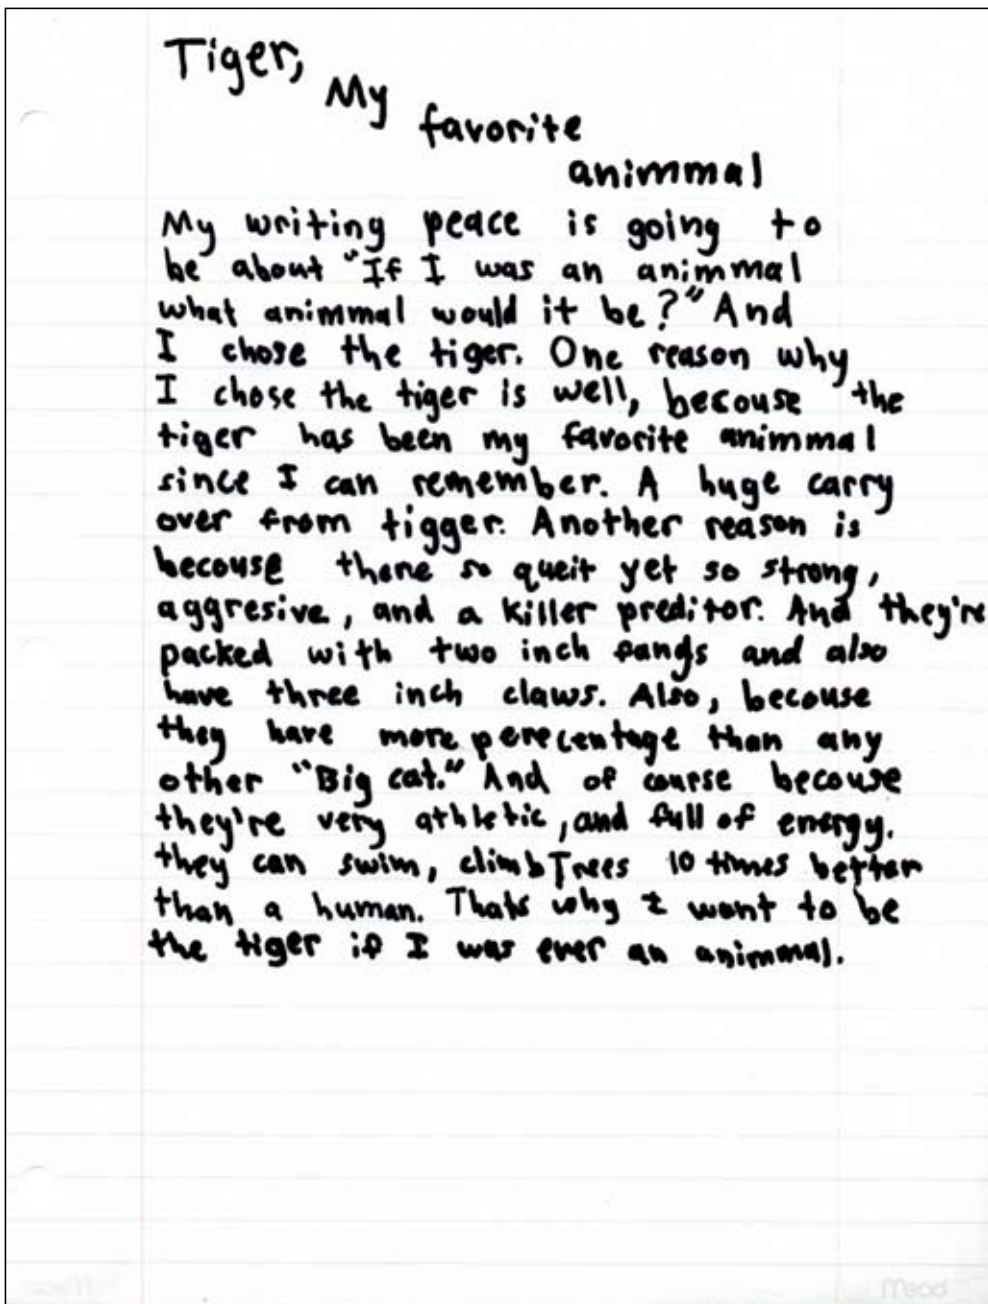 Tiger,
My
favorite
animmal
My writing peace is going to
be about "If I was an animmal
what animmal would it be?" And
I chose the tiger. One reason why
I chose the tiger is well, becouse the
tiger has been my favorite animmal
since I can remember. A huge carry
over from tigger. Another reason is
becouse there so queit yet so strong,
aggresive, and a killer preditor. And they're
packed with two inch fangs and also
have three inch claws. Also, becouse
they have more perecentage than any
other "Big cat." And of course becouse
they're very athletic, and full of energy.
they can swim, climb Trees 10 times better
than a human. Thats why I want to be
the tiger if I was ever an animmal.
Mead